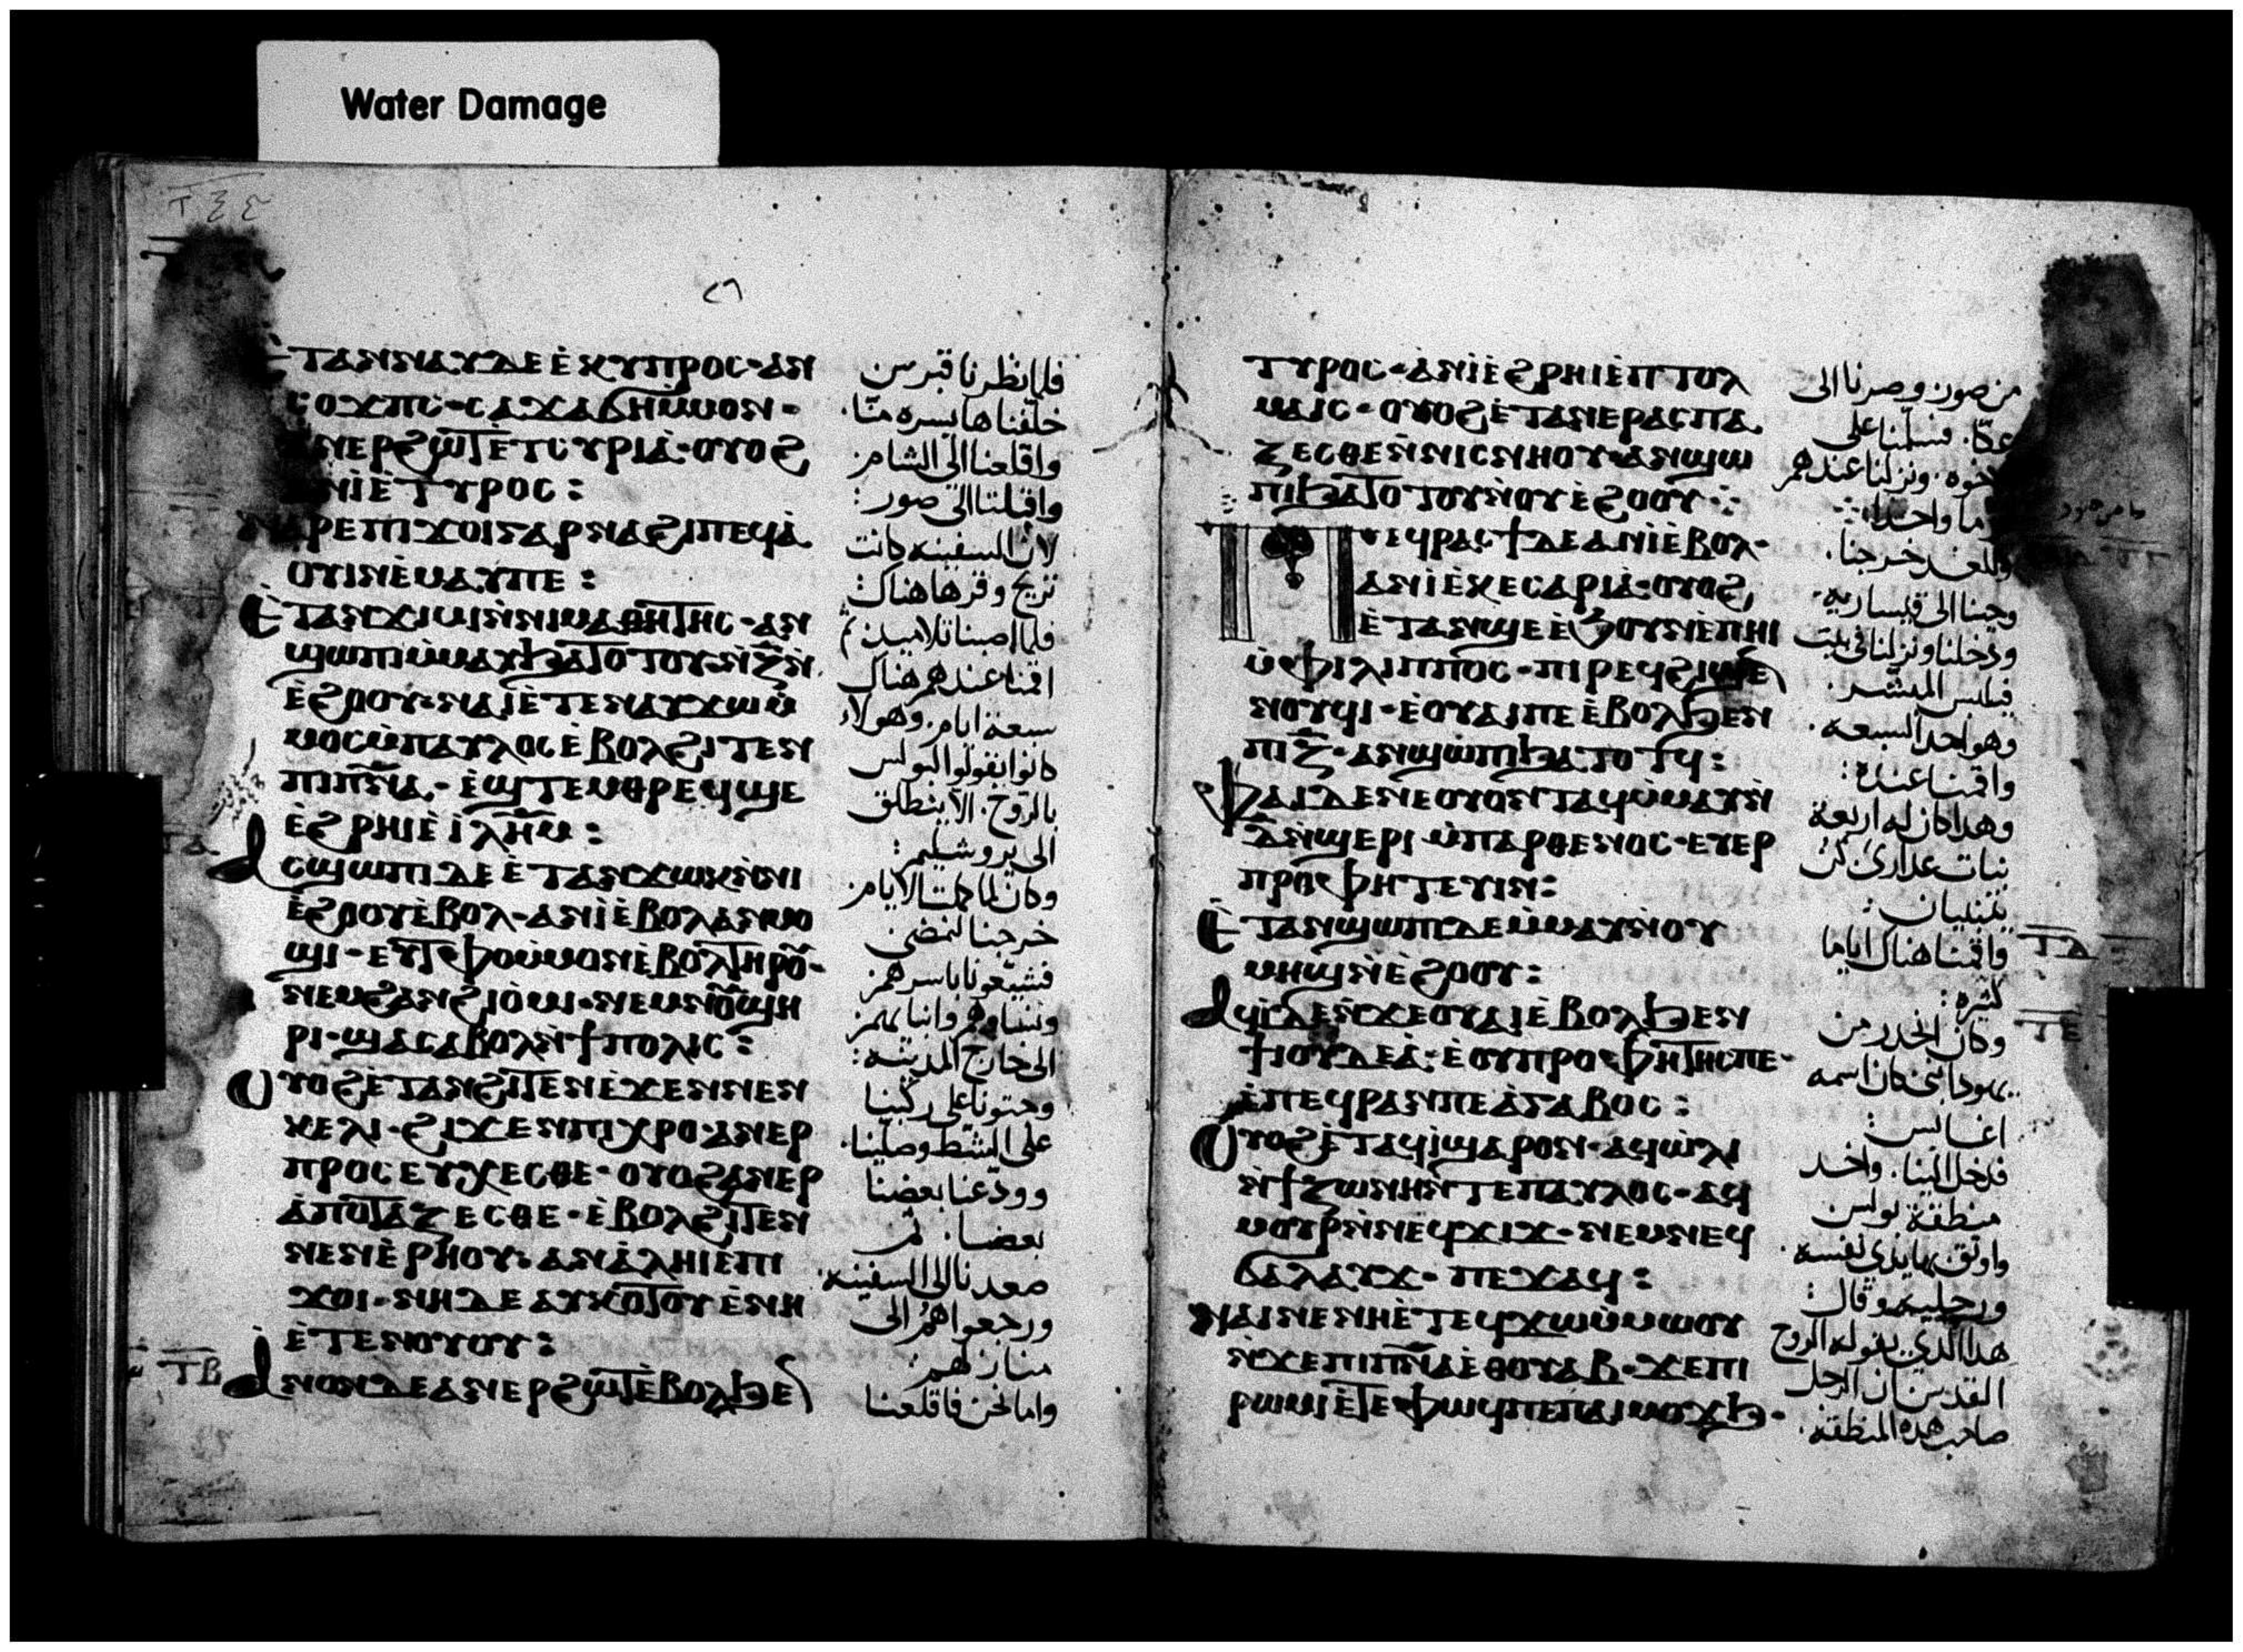 Water Damage
ⲉ̀ⲧⲁⲛⲛⲁⲩⲇⲉⲉ̀ⲕⲩⲡⲣⲟⲥ·ⲁⲛ
ⲥⲟϫⲡⲥ·ⲥⲁϫⲁϭⲏⲙ̀ⲙⲟⲛ·
ⲟⲩⲓⲛⲉ̀ⲙⲁⲩⲡⲉ:
ⲉ̀ⲧⲁⲛϫⲓⲙⲓⲛ̀ⲛⲓⲙⲁⲑⲏⲧⲏⲥ·ⲁⲛ
ϣⲱⲡⲓⲙ̀ⲙⲁⲩϧⲁⲧⲟⲧⲟⲩ·ⲛ̀ⲍ̅ⲛ̀
ⲉ̀ϩⲟⲟⲩ·ⲛⲁⲓⲉ̀ⲧⲉⲛⲁⲩϫⲱⲙ̀
ⲙⲟⲥⲙ̀ⲡⲁⲩⲗⲟⲥⲉ̀ⲃⲟⲗϩⲓⲧⲉⲛ
ⲡⲓⲡ̅ⲛ̅ⲁ̅·ⲉ̀ϣⲧⲉⲙⲑⲣⲉϥϣⲉ
ⲉ̀ϩⲣⲏⲓⲉ̀ⲓ̀ⲗ̅ⲏ̅ⲙ̅:
ⲁⲥϣⲱⲡⲓⲇⲉⲉ̀ⲧⲁⲛϫⲱⲕⲛ̀ⲛⲓ
ⲉ̀ϩⲟⲟⲩⲉ̀ⲃⲟⲗ·ⲁⲛⲓ̀ⲉ̀ⲃⲟⲗⲁⲛⲙⲟ
ϣⲓ·ⲉⲩⲧⲫⲟⲙ̀ⲙⲟⲛⲉ̀ⲃⲟⲗⲧⲏⲣⲟⲩ·
ⲛⲉⲙϩⲁⲛϩⲓⲟ̀ⲙⲓ·ⲛⲉⲙⲛⲟⲩϣⲏ
ⲣⲓ·ϣⲁⲥⲁⲃⲟⲗⲛ̀ϯⲡⲟⲗⲓⲥ:
ⲟⲩⲟϩⲉ̀ⲧⲁⲛϩⲓⲧⲉⲛⲉ̀ϫⲉⲛⲛⲉⲛ
ⲕⲉⲗⲓ·ϩⲓϫⲉⲛⲡⲓⲭⲣⲟ·ⲁⲛⲉⲣ
ⲡⲣⲟⲥⲉⲩⲭⲉⲥⲑⲉ·ⲟⲩⲟϩⲁⲛⲉⲣ
ⲁ̀ⲡⲟⲧⲁⲍⲉⲥⲑⲉ·ⲉ̀ⲃⲟⲗϩⲓⲧⲉⲛ
ⲛⲉⲛⲉ̀ⲣⲏⲟⲩ:ⲁⲛⲁ̀ⲗⲏⲓⲉ̀ⲡⲓ
ϫⲟⲓ·ⲛⲏⲇⲉⲁⲩⲕⲟⲧⲟⲩⲉ̀ⲛⲏ
ⲉ̀ⲧⲉⲛⲟⲩⲟⲩ:
ⲁⲛⲟⲛⲇⲉⲁⲛⲉⲣϩⲱⲧⲉ̀ⲃⲟⲗϧⲉ
فلما نظرنا قبرس
خلفناها يسره منا.
واقلعنا الى الشام
واقبلنا الى صور:
لان السفينه كانت
تريح وقرها هناك:
فلما اصبنا تلاميذ
اقمنا عندهم هناك
سبعة ايام. وهولاء
كانوا يقولوا لبولس
بالروح. الا ينطلق
الى يروشليم:
وكان لما كملت الايام
خرجنا لنمضى
فشيعونا باسرهم
ونساوهم وابنايهم
الى خارج المدينه:
وجثونا على ركبنا
على الشط وصلينا.
وودعنا بعضنا
بعضا. ثم
صعدنا الى السفينه.
ورجعوا هم الى
منازلهم:
واما نحن فاقلعنا
ⲧⲩⲣⲟⲥ·ⲁⲛⲓ̀ⲉ̀ϩⲣⲏⲓⲉ̀ⲡⲧⲟⲗ
ⲙⲁⲓⲥ·ⲟⲩⲟϩⲉ̀ⲧⲁⲛⲉⲣⲁⲥⲡⲁ
ⲍⲉⲥⲑⲉⲛ̀ⲛⲓⲥⲛⲏⲟⲩ·ⲁⲛϣⲱ
ⲡⲓϧⲁⲧⲟⲧⲟⲩⲛ̀ⲟⲩⲉ̀ϩⲟⲟⲩ
ⲡⲉϥⲣⲁⲥϯⲇⲉⲁⲛⲓ̀ⲉ̀ⲃⲟⲗ·
ⲁⲛⲓ̀ⲉ̀ⲕⲉⲥⲁⲣⲓⲁ̀·ⲟⲩⲟϩ
ⲉ̀ⲧⲁⲛϣⲉⲉ̀ϧⲟⲩⲛⲉ̀ⲡⲏⲓ
ⲙ̀ⲫⲓⲗⲓⲡⲡⲟⲥ·ⲡⲓⲣⲉϥϩⲓϣⲉ
ⲛⲟⲩϥⲓ·ⲉ̀ⲟⲩⲁⲓⲡⲉⲉ̀ⲃⲟⲗϧⲉⲛ
ⲡⲓⲍ̅·ⲁⲛϣⲱⲡⲓϧⲁⲧⲟⲧϥ:
ⲫⲁⲓⲇⲉⲛⲉⲟⲩⲟⲛⲧⲁϥⲙ̀ⲙⲁⲩⲛ̀
ⲇ̅ⲛ̀ϣⲉⲣⲓ·ⲙ̀ⲡⲁⲣⲑⲉⲛⲟⲥ·ⲉⲩⲉⲣ
ⲡⲣⲟⲫⲏⲧⲉⲩⲓⲛ:
ⲉ̀ⲧⲁⲛϣⲱⲡⲓⲇⲉⲙ̀ⲙⲁⲩⲛ̀ⲟⲩ
ⲙⲏϣⲛ̀ⲉ̀ϩⲟⲟⲩ:
ⲁϥⲓ̀ⲇⲉⲛ̀ϫⲉⲟⲩⲁⲓⲉ̀ⲃⲟⲗϧⲉⲛ
ϯⲓⲟⲩⲇⲉⲁ̀·ⲉ̀ⲟⲩⲡⲣⲟⲫⲏⲧⲏⲥⲡⲉ·
ⲉ̀ⲡⲉϥⲣⲁⲛⲡⲉⲁ̀ⲅⲁⲃⲟⲥ:
ⲟⲩⲟϩⲉ̀ⲧⲁϥⲓ̀ϣⲁⲣⲟⲛ·ⲁϥⲱ̀ⲗⲓ
ⲛ̀ϯⲍⲱⲛⲏⲛ̀ⲧⲉⲡⲁⲩⲗⲟⲥ·ⲁϥ
ⲙⲟⲩⲣⲛ̀ⲛⲉϥϫⲓϫ·ⲛⲉⲙⲛⲉϥ
ϭⲁⲗⲁⲩϫ·ⲡⲉϫⲁϥ:
ⲛⲁⲓⲛⲉⲛⲏⲉ̀ⲧⲉϥϫⲱⲙ̀ⲙⲱⲟⲩ
ⲛ̀ϫⲉⲡⲓⲡ̅ⲛ̅ⲁ̅ⲉ̀ⲑⲟⲩⲁⲃ·ϫⲉⲡⲓ
ⲣⲱⲙⲓⲉ̀ⲧⲉⲫⲱϥⲡⲉⲡⲁⲓⲙⲟϫϧ·
من صور وصرنا الى
عكا. فسلمنا على
ونزلنا عندهم
وللغد خرجنا.
وجينا الى قيساريه.
ودخلنا ونزلنا فى بيت
فيلبس المبشر.
وهو احد السبعه.
واقمنا عنده:
وهذا كان له اربعة
بنات عذارى كن
يتنبيان:
واقمنا هناك اياما
كثيره:
وكان انحدر من
يهودا نبى كان اسمه
اغابس:
فدخل الينا. واخد
منطقة بولس
واوثق بها يدى نفسه.
ورجليه وقال:
هذا الذى يقوله الروح
القدس ان الرجل
صاحب هذه المنطقه.